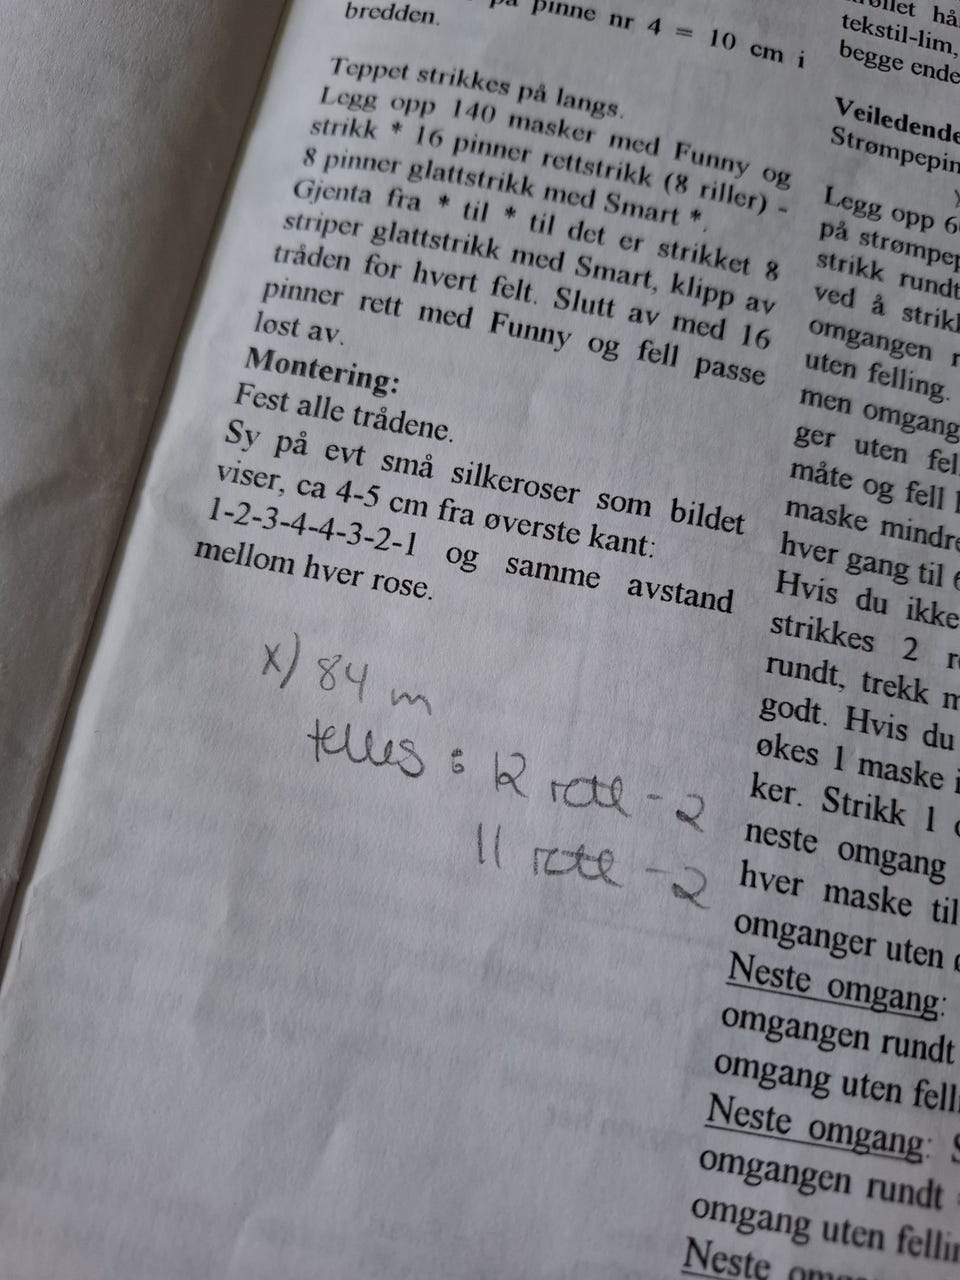 pinne nr 4 = 10 cm i
bredden.
Teppet strikkes på langs.
Legg opp 140 masker med Funny og
strikk * 16 pinner rettstrikk (8 riller) -
8 pinner glattstrikk med Smart *.
Gjenta fra * til * til det er strikket 8
striper glattstrikk med Smart, klipp av
tråden for hvert felt. Slutt av med 16
pinner rett med Funny og fell passe
løst av.
Montering:
Fest alle trådene.
Sy på evt små silkeroser som bildet
viser, ca 4-5 cm fra øverste kant:
1-2-3-4-4-3-2-1 og samme avstand
mellom hver rose.
x) 84 m
telles : 12 rett - 2
11 rett - 2
tekstil-lim,
begge ende
Veiledende
Strømpepin
Legg opp 6
på strømpep
strikk rundt
ved å strikk
omgangen r
uten felling.
men omgang
ger uten fel
måte og fell
maske mindre
hver gang til 6
Hvis du ikke
strikkes 2 r
rundt, trekk
godt. Hvis du
økes 1 maske i
ker. Strikk 1
neste omgang
hver maske til
omganger uten
Neste omgang:
omgangen rundt
omgang uten felli
Neste omgang: S
omgangen rundt
omgang uten fellin
Neste